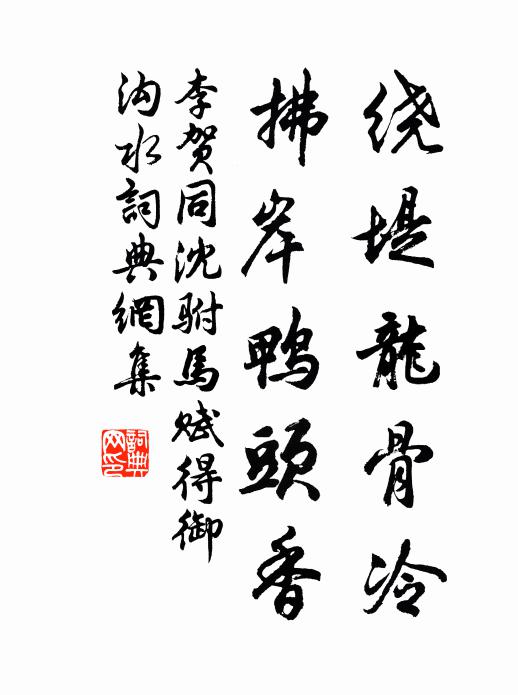 绕堤龍骨冷
拂岸鴨頭香
李贺同沈駙馬赋得御
沟水詞典網集
詞典网印